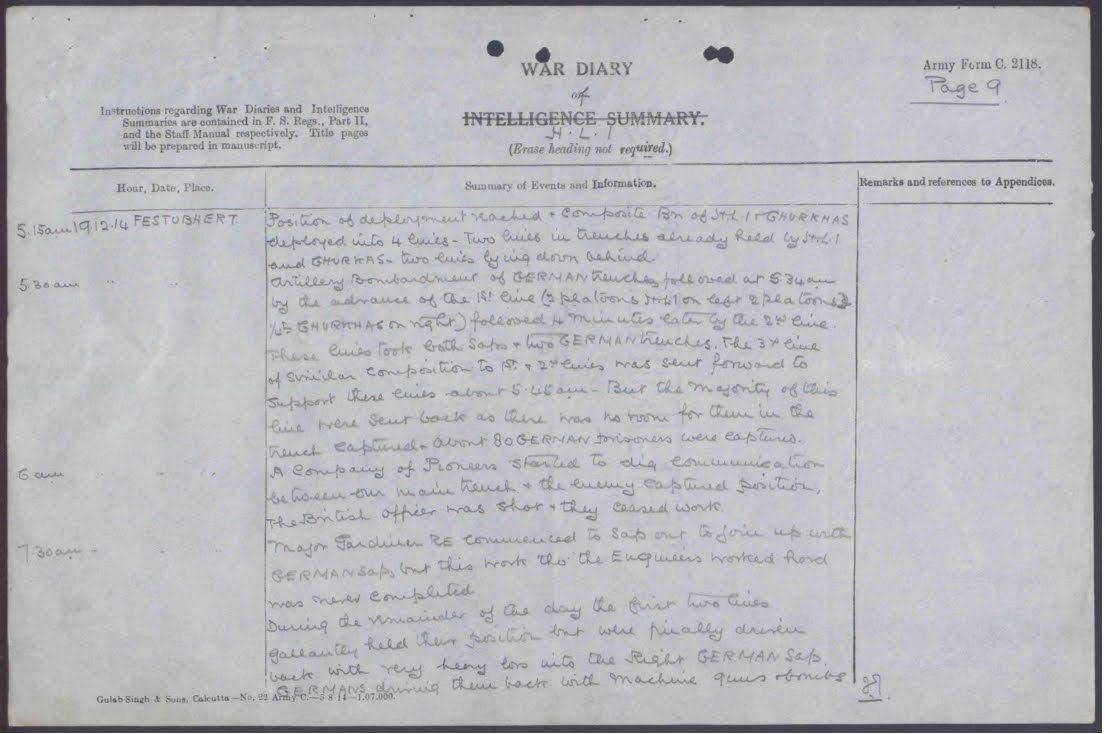 WAR DIARY
of
INTELLIGENCE SUMMARY.
H.L.I
(Erase heading not required.)
Army Form C. 2118.
Page 9
Instructions regarding War Diaries and Intelligence
Summaries are contained in F. S. Regs., Part II,
and the Staff Manual respectively. Title pages
will be prepared in manuscript.
Hour, Date, Place.
Summary of Events and Information.
Remarks and references to Appendices.
5.15am 19.12.14 FESTUBHERT
Position of deployment reached + Composite Bn of H.L.I + GHURKHAS
deployed into 4 lines - Two lines in trenches already held by H.L.I
and GHURKAS - two lines lying down behind.
5 30am
Artillery Bombardment of GERMAN trenches followed at 5 34am
by the advance of the 1st line (2 platoons H.L.I on left 2 platoons
GHURKHAS on right) followed 4 minutes later by the 2nd line.
These lines took both Saps + two GERMAN trenches. The 3rd line
of similar composition to 1st + 2nd lines was sent forward to
support these lines about 5.45am - But the majority of this
line were sent back as there was no room for them in the
trench captured. About 80 GERMAN prisoners were captured.
6 am
A Company of Pioneers started to dig communication
between our main trench + the enemy captured position,
The British officer was shot + they ceased work.
7.30am
Major Gardiner RE commenced to Sap out to join up with
GERMAN Sap, but this work tho' the Engineers worked hard
was never completed
During the remainder of the day the first two lines
gallantly held their position but were finally driven
back with very heavy loss into the Right GERMAN Sap.
GERMANS driving them back with machine guns + bombs
Gulab Singh & Sons, Calcutta—No. 22 Army C.—5-8-14—1,07,000.